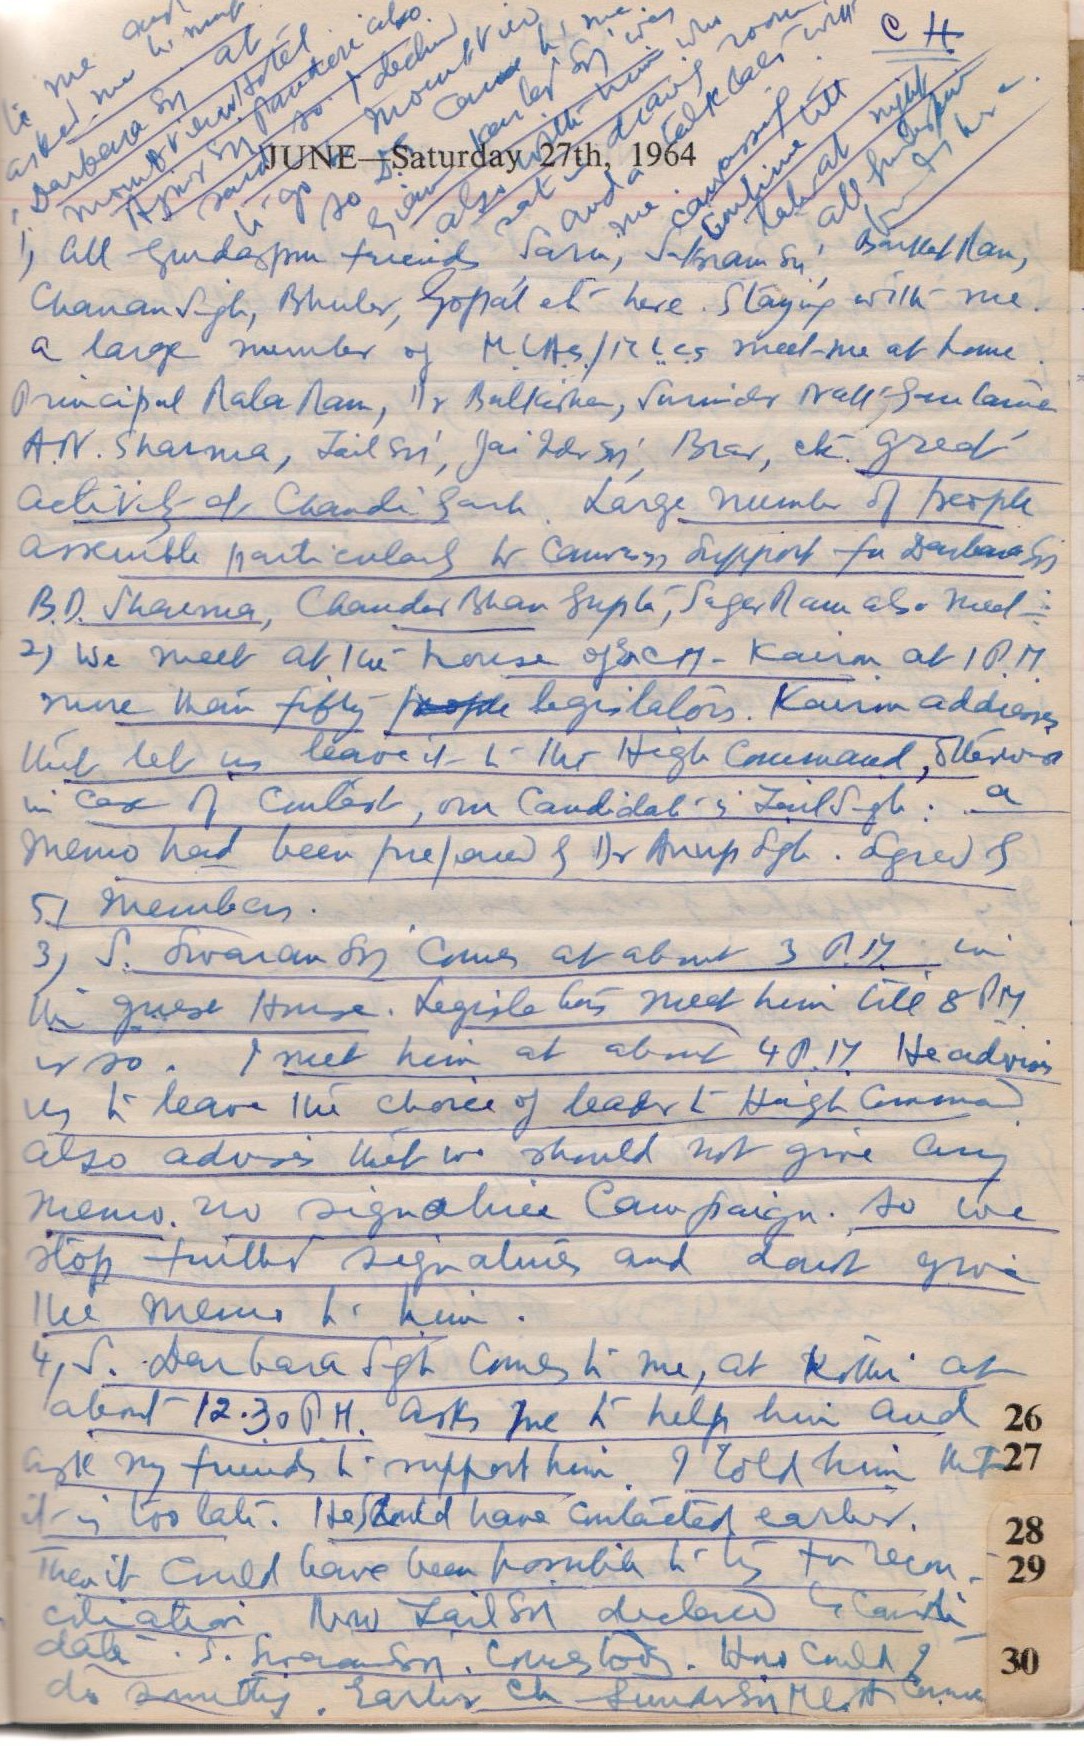 C H
JUNE—Saturday 27th, 1964
to me and
asked me to meet
Darbara Sn at
Mount View Hotel
Ajmer Sn
said so I declined
to go Mount View
so DS came to me
Gian Kartar Sn was
also with him who
sat in drawing room
and talk
me canvassing
continue till
late at night
all Gurdaspur
1, All Gurdaspur friends Sarin, Barkat Ram,
Chanan Singh, Bhuler, Gopal etc here. Staying with me.
a large number of MLAs/MLCs meet me at home.
Principal Rala Ram, Dr Balkishan, Surinder Nath Gautama
A.N. Sharma, Zail Sn, Jai Inder Sn, Brar, etc. great
activity at Chandigarh. Large number of people
assemble particularly to canvass support for Darbara Sn
B.D. Sharma, Chander Bhan Gupta, Sagar Ram also meet
2, We meet at the house of Ex CM - Kairon at 1 P.M.
more than fifty people legislators. Kairon addresses
that let us leave it to the High Command, otherwise
in case of contest, our Candidate is Zail Sgh. a
memo had been prepared by Dr Anup Sgh. Signed by
51 members.
3, S. Swaran Sn comes at about 3 P.M. in
the guest House. Legislators meet him till 8 PM
or so. I meet him at about 4 P.M. He advises
us to leave the choice of leader to High Command
also advises that we should not give any
memo. no signature Campaign. so we
stop further signatures and dont give
the memo to him.
4, S. Darbara Sgh comes to me, at Kothi at
about 12.30 P.M. asks me to help him and
ask my friends to support him. I told him that
it is too late. He should have contacted earlier.
Then it could have been possible to try for recon-
ciliation. Now Zail Sn declared as Candi-
date. S. Swaran Sn. Comes today. How could I
do something. Earlier Ch Sunder Sn MLA came
26
27
28
29
30